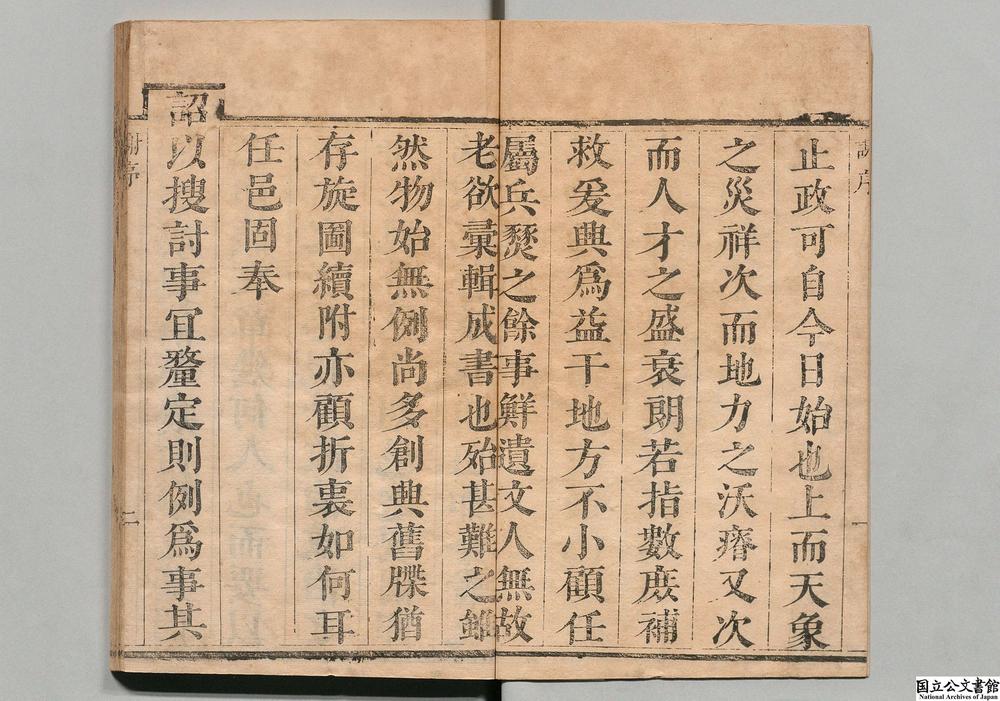 止政可自今日始也上而天象
之災祥次而地力之沃瘠又次
而人才之盛衰朗若指數庶補
救爰興爲益于地方不小顧任
屬兵燹之餘事鮮遺文人無故
老欲彙輯成書也殆甚難之雖
然物始無例尚多創典舊牒猶
存旋圖續附亦顧折衷如何耳
任邑固奉
詔以搜討事冝釐定則例爲事其
謝序
二
国立公文書館
National Archives of Japan